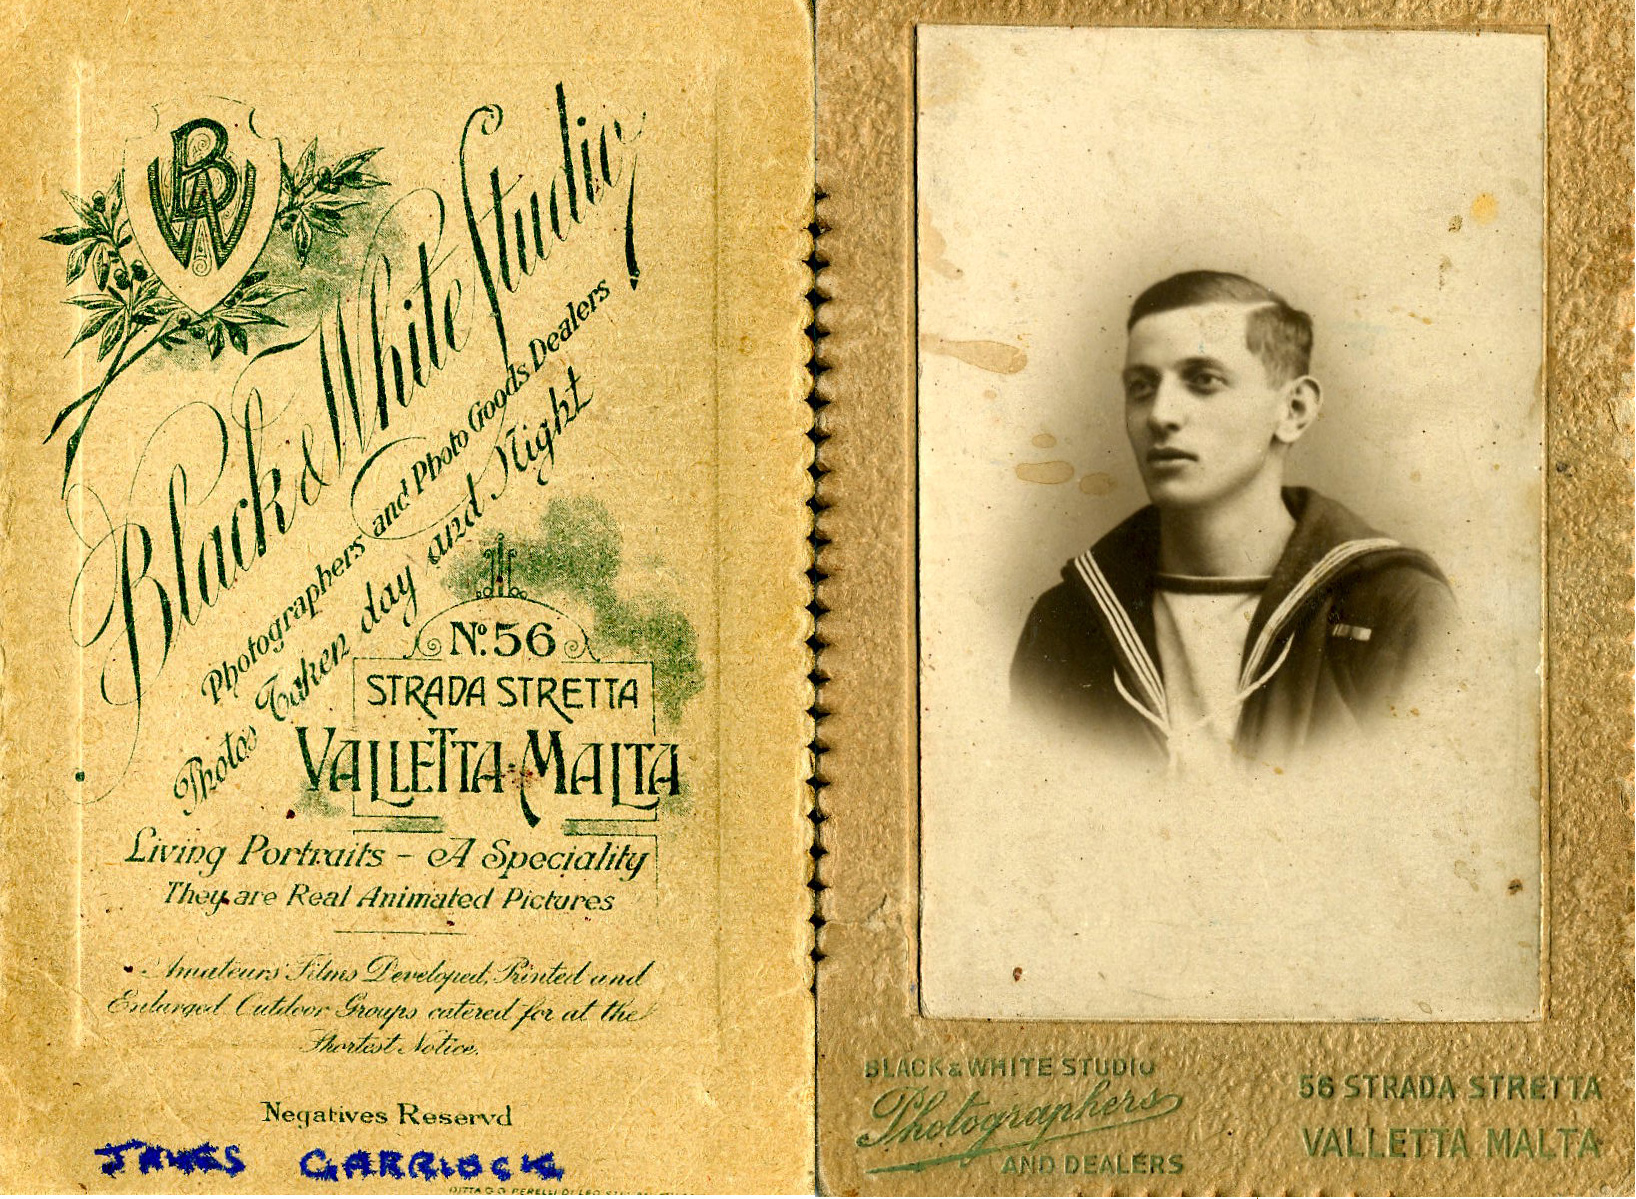 BW
Black & White Studio
Photographers and Photo Goods Dealers
Photos Taken day and Night
No. 56
STRADA STRETTA
VALLETTA-MALTA
Living Portraits - A Speciality
They are Real Animated Pictures
Amateurs' Films Developed, Printed and
Enlarged Outdoor Groups catered for at the
Shortest Notice.
Negatives Reservd
JAMES GARRIOCK
BLACK & WHITE STUDIO
Photographers
AND DEALERS
56 STRADA STRETTA
VALLETTA MALTA